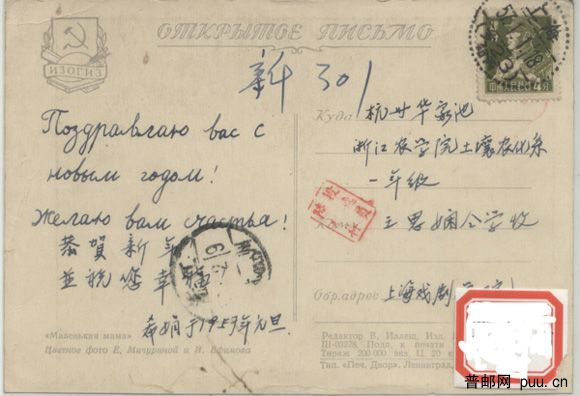 ИЗОГИЗ
ОТКРЫТОЕ ПИСЬМО
新301
Поздравлаю вас с
новым годом!
Желаю вам счастья!
恭贺新年
並祝您幸福
希娟于1957年元旦
«Маленький мама»
Цветное фото Е. Мичуриной и И. Ефимова
上海
Куда
杭州华家池
浙江农学院土壤农化系
一年级
王思娴同学收
Обр. адрес
上海戏剧学院
Редактор В. Иллеш, Изд.
III-00278. Подп. к печати
Тираж 200 000 экз Ц. 20 к
Тип. «Печ. Двор». Ленинград,
普邮网 puu.cn